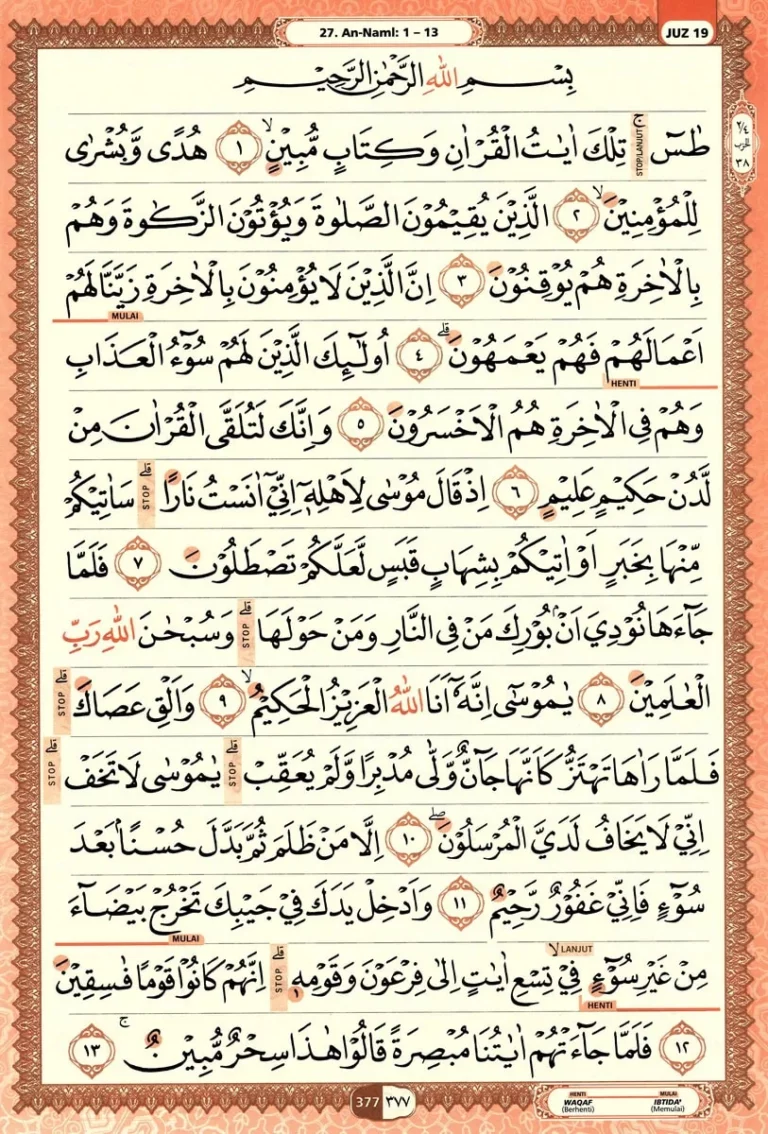 27. An-Naml: 1 – 13
JUZ 19
٢/٤
الحزب
٣٨
بِسْمِ اللّٰهِ الرَّحْمٰنِ الرَّحِيْمِ
طٰسۤ ۚ STOP/LANJUT تِلْكَ اٰيٰتُ الْقُرْاٰنِ وَكِتَابٍ مُّبِيْنٍ ۙ ١ هُدًى وَّبُشْرٰى
لِلْمُؤْمِنِيْنَ ۙ ٢ الَّذِيْنَ يُقِيْمُوْنَ الصَّلٰوةَ وَيُؤْتُوْنَ الزَّكٰوةَ وَهُمْ
بِالْاٰخِرَةِ هُمْ يُوْقِنُوْنَ ٣ اِنَّ الَّذِيْنَ لَا يُؤْمِنُوْنَ بِالْاٰخِرَةِ زَيَّنَّا لَهُمْ
MULAI
اَعْمَالَهُمْ فَهُمْ يَعْمَهُوْنَ ۗ ٤ اُولٰۤىِٕكَ الَّذِيْنَ لَهُمْ سُوْۤءُ الْعَذَابِ
HENTI
وَهُمْ فِى الْاٰخِرَةِ هُمُ الْاَخْسَرُوْنَ ٥ وَاِنَّكَ لَتُلَقَّى الْقُرْاٰنَ مِنْ
لَّدُنْ حَكِيْمٍ عَلِيْمٍ ٦ اِذْ قَالَ مُوْسٰى لِاَهْلِهٖٓ اِنِّيْٓ اٰنَسْتُ نَارًا ۗ STOP سَاٰتِيْكُمْ
مِّنْهَا بِخَبَرٍ اَوْ اٰتِيْكُمْ بِشِهَابٍ قَبَسٍ لَّعَلَّكُمْ تَصْطَلُوْنَ ٧ فَلَمَّا
جَاۤءَهَا نُوْدِيَ اَنْۢ بُوْرِكَ مَنْ فِى النَّارِ وَمَنْ حَوْلَهَا ۗ STOP وَسُبْحٰنَ اللّٰهِ رَبِّ
الْعٰلَمِيْنَ ٨ يٰمُوْسٰٓى اِنَّهٗٓ اَنَا اللّٰهُ الْعَزِيْزُ الْحَكِيْمُ ۙ ٩ وَاَلْقِ عَصَاكَ ۗ STOP
فَلَمَّا رَاٰهَا تَهْتَزُّ كَاَنَّهَا جَاۤنٌّ وَّلّٰى مُدْبِرًا وَّلَمْ يُعَقِّبْ ۗ STOP يٰمُوْسٰى لَا تَخَفْ ۗ STOP
اِنِّيْ لَا يَخَافُ لَدَيَّ الْمُرْسَلُوْنَ ۖ ١٠ اِلَّا مَنْ ظَلَمَ ثُمَّ بَدَّلَ حُسْنًاۢ بَعْدَ
سُوْۤءٍ فَاِنِّيْ غَفُوْرٌ رَّحِيْمٌ ١١ وَاَدْخِلْ يَدَكَ فِيْ جَيْبِكَ تَخْرُجْ بَيْضَاۤءَ
MULAI
LANJUT
مِنْ غَيْرِ سُوْۤءٍ ۙ فِيْ تِسْعِ اٰيٰتٍ اِلٰى فِرْعَوْنَ وَقَوْمِهٖ ۗ STOP اِنَّهُمْ كَانُوْا قَوْمًا فٰسِقِيْنَ
HENTI
١٢ فَلَمَّا جَاۤءَتْهُمْ اٰيٰتُنَا مُبْصِرَةً قَالُوْا هٰذَا سِحْرٌ مُّبِيْنٌ ۚ ١٣
377 ٣٧٧
HENTI MULAI
WAQAF IBTIDA'
(Berhenti) (Memulai)